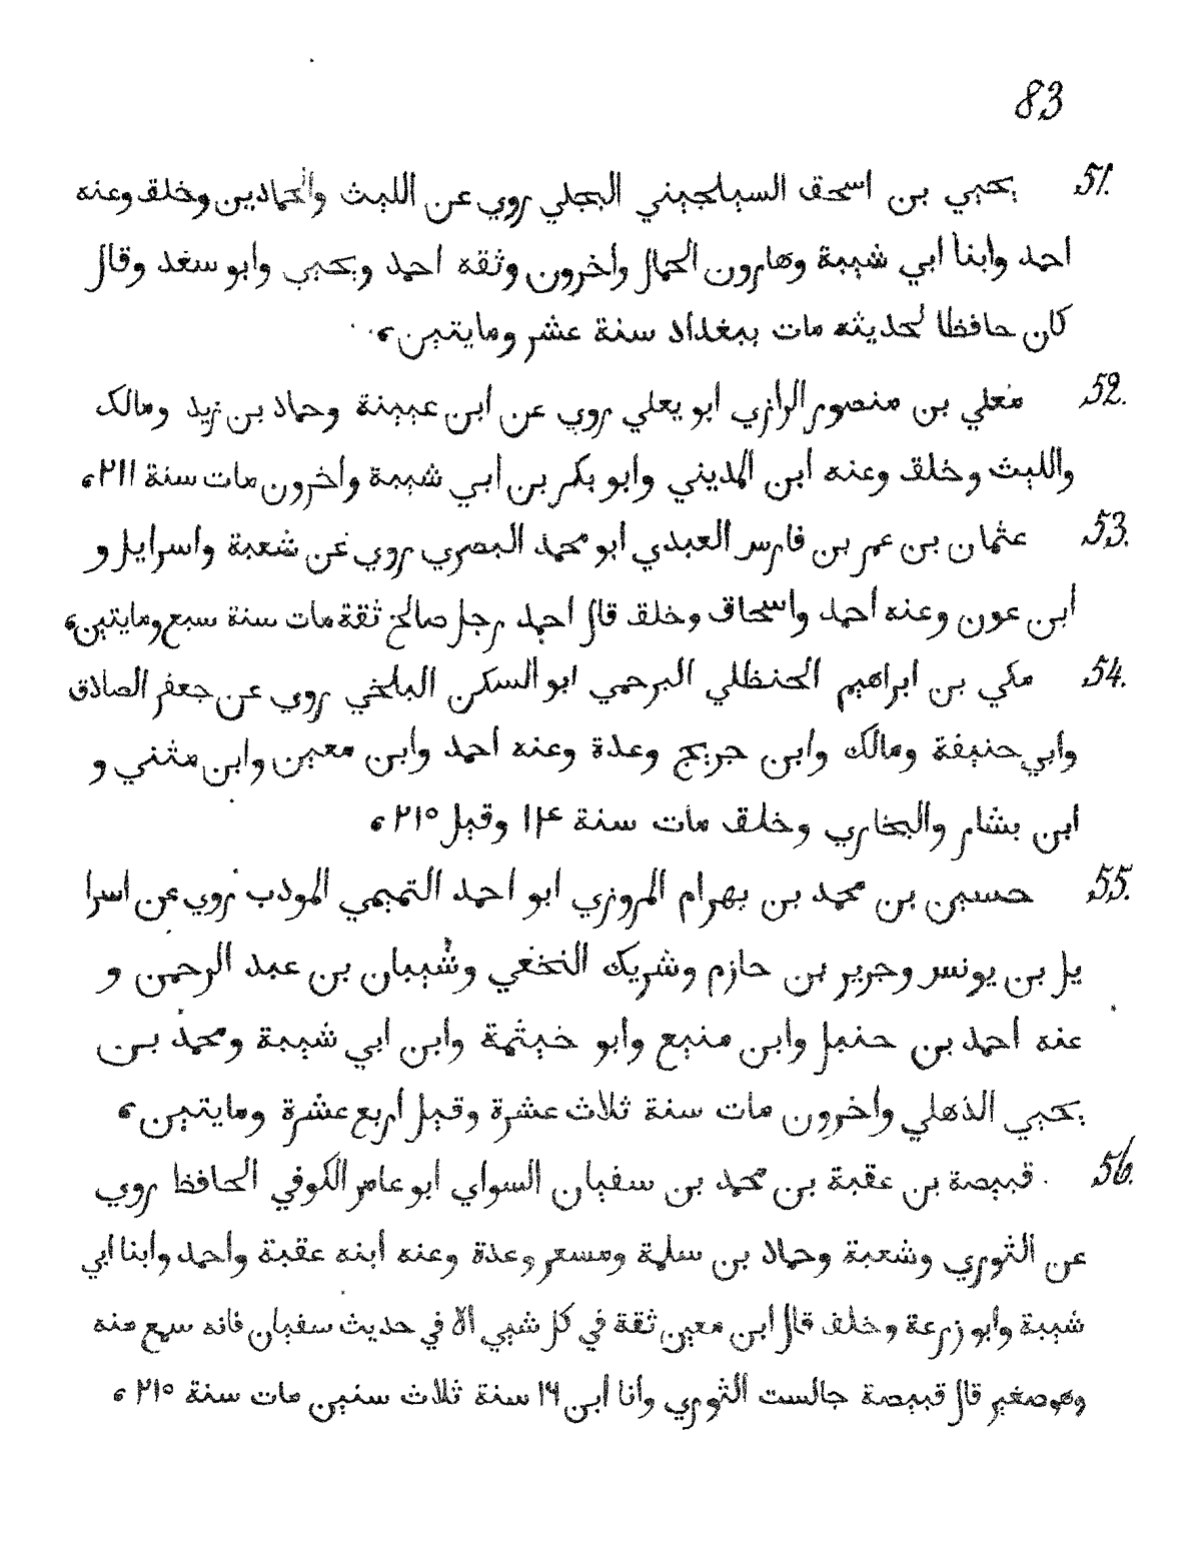 83
51. يحيي بن اسحق السيلحيني البجلي روي عن الليث والحمادين وخلق وعنه
احمد وابنا ابي شيبة وهارون الحمال واخرون وثقه احمد ويحيي وابو سغد وقال
كان حافظا لحديثه مات ببغداد سنة عشر ومايتين،
52. معلي بن منصور الرازي ابو يعلي روي عن ابن عيينة وحماد بن زيد ومالك
والليث وخلق وعنه ابن المديني وابو بكر بن ابي شيبة واخرون مات سنة ٢١١،
53. عثمان بن عمر بن فارس العبدي ابو محمد البصري روي عن شعبة واسرايل و
ابن عون وعنه احمد واسحاق وخلق قال احمد رجل صالح ثقة مات سنة سبع ومايتين،
54. مكي بن ابراهيم الحنظلي البرحمي ابو السكن البلخي روي عن جعفر الصادق
وابي حنيفة ومالك وابن جريج وعدة وعنه احمد وابن معين وابن مثني و
ابن بشار والبخاري وخلق مات سنة ٢١٤ وقيل ٢١٥،
55. حسين بن محمد بن بهرام المروزي ابو احمد التميمي المودب روي عن اسرا
يل بن يونس وجرير بن حازم وشريك النخعي وشيبان بن عبد الرحمن و
عنه احمد بن حنبل وابن منيع وابو خيثمة وابن ابي شيبة ومحمد بن
يحيي الذهلي واخرون مات سنة ثلاث عشرة وقيل اربع عشرة ومايتين،
56. قبيصة بن عقبة بن محمد بن سفيان السواي ابو عامر الكوفي الحافظ روي
عن الثوري وشعبة وحماد بن سلمة ومسعر وعدة وعنه ابنه عقبة واحمد وابنا ابي
شيبة وابو زرعة وخلف قال ابن معين ثقة في كل شيي الا في حديث سفيان فانه سمع منه
وهو صغير قال قبيصة جالست الثوري وانا ابن ١٦ سنة ثلاث سنين مات سنة ٢١٥،